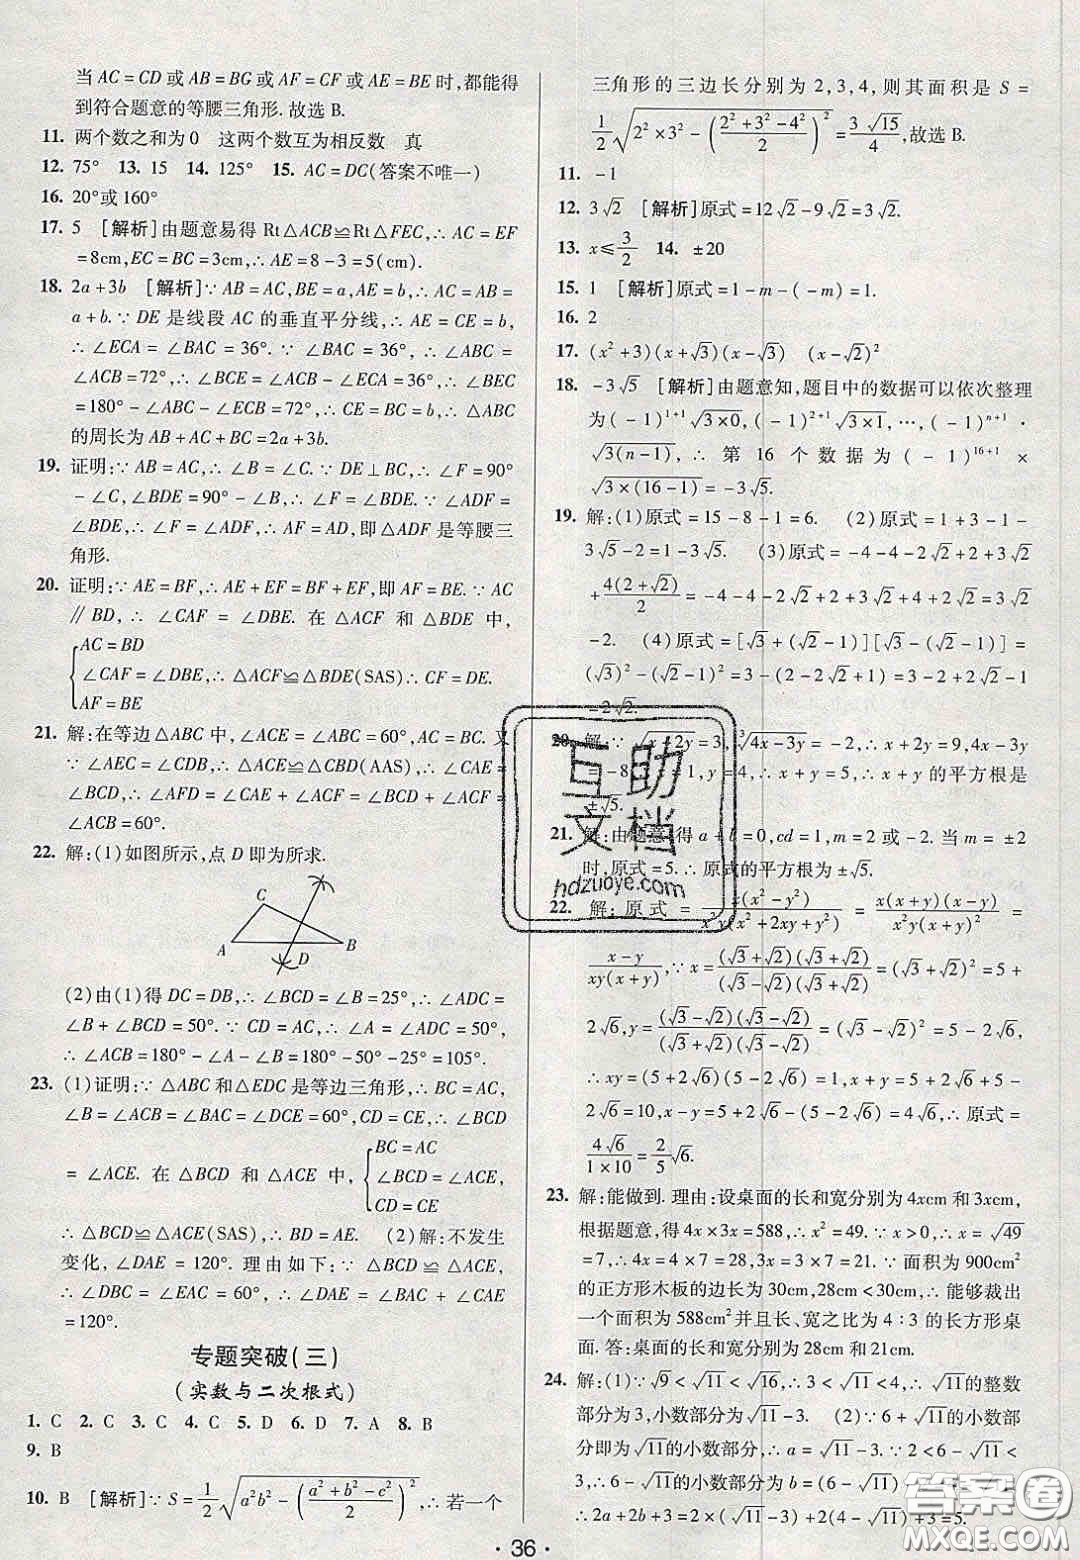 当 AC = CD 或 AB = BG 或 AF = CF 或 AE = BE 时,都能得
到符合题意的等腰三角形. 故选 B.
11. 两个数之和为 0　这两个数互为相反数　真
12. 75°　13. 15　14. 125°　15. AC = DC(答案不唯一)
16. 20°或 160°
17. 5　[解析]由题意易得 Rt△ACB≌Rt△FEC,∴ AC = EF
= 8cm,EC = BC = 3cm,∴ AE = 8 - 3 = 5(cm).
18. 2a + 3b　[解析]∵ AB = AC,BE = a,AE = b,∴ AC = AB =
a + b. ∵ DE 是线段 AC 的垂直平分线,∴ AE = CE = b,
∴ ∠ECA = ∠BAC = 36°. ∵ ∠BAC = 36°,∴ ∠ABC =
∠ACB = 72°,∴ ∠BCE = ∠ACB - ∠ECA = 36°,∴ ∠BEC
= 180° - ∠ABC - ∠ECB = 72°,∴ CE = BC = b,∴ △ABC
的周长为 AB + AC + BC = 2a + 3b.
19. 证明:∵ AB = AC,∴ ∠B = ∠C. ∵ DE⊥BC,∴ ∠F = 90°
- ∠C,∠BDE = 90° - ∠B,∴ ∠F = ∠BDE. ∵ ∠ADF =
∠BDE,∴ ∠F = ∠ADF,∴ AF = AD,即△ADF 是等腰三
角形.
20. 证明:∵ AE = BF,∴ AE + EF = BF + EF,即 AF = BE. ∵ AC
∥ BD, ∴ ∠CAF = ∠DBE. 在 △ACF 和 △BDE 中,
{AC = BD
∠CAF = ∠DBE,∴ △ACF≌△BDE(SAS) ∴ CF = DE.
AF = BE
21. 解:在等边△ABC 中,∠ACE = ∠CBD = 60°,AC = BC. 又
∵ ∠AEC = ∠CDB,∴ △ACE≌△CBD(AAS),∴ ∠CAE =
∠BCD,∴ ∠AFD = ∠CAE + ∠ACF = ∠BCD + ∠ACF =
∠ACB = 60°.
22. 解:(1)如图所示,点 D 即为所求.
C
A D B
(2)由(1)得 DC = DB,∴ ∠BCD = ∠B = 25°,∴ ∠ADC =
∠B + ∠BCD = 50°. ∵ CD = AC,∴ ∠A = ∠ADC = 50°,
∴ ∠ACB = 180° - ∠A - ∠B = 180° - 50° - 25° = 105°.
23. (1)证明:∵ △ABC 和△EDC 是等边三角形,∴ BC = AC,
∠B = ∠ACB = ∠BAC = ∠DCE = 60°,CD = CE,∴ ∠BCD
= ∠ACE. 在 △BCD 和 △ACE 中, {BC = AC
∠BCD = ∠ACE,
CD = CE
∴ △BCD≌△ACE(SAS),∴ BD = AE. (2)解:不发生
变化, ∠DAE = 120°. 理由如下: ∵ △BCD ≌ △ACE,
∴ ∠DBC = ∠EAC = 60°, ∴ ∠DAE = ∠BAC + ∠CAE
= 120°.
专题突破(三)
(实数与二次根式)
1. C　2. C　3. C　4. C　5. D　6. D　7. A　8. B
9. B
10. B　[解析]∵ S = 1/2 √(a²b² - ((a² + b² - c²)/2)²),∴ 若一个
三角形的三边长分别为 2,3,4, 则其面积是 S =
1/2 √(2² × 3² - ((2² + 3² - 4²)/2)²) = 3√15/4,故选 B.
11. -1
12. 3√2　[解析]原式 = 12√2 - 9√2 = 3√2.
13. x ≤ 3/2　14. ±20
15. 1　[解析]原式 = 1 - m - ( - m) = 1.
16. 2
17. (x² + 3)(x + √3)(x - √3)　(x - √2)²
18. -3√5　[解析]由题意知,题目中的数据可以依次整理
为( - 1)¹⁺¹ √(3×0),( - 1)²⁺¹ √(3×1),…,( - 1)ⁿ⁺¹ ·
√(3(n - 1)), ∴ 第 16 个数据为 ( - 1)¹⁶⁺¹ ×
√(3 × (16 - 1)) = -3√5.
19. 解:(1)原式 = 15 - 8 - 1 = 6.　(2)原式 = 1 + 3 - 1 -
3√5 - 2 = 1 - 3√5.　(3)原式 = -4 - 2√2 + 2 + 3√2
+ 4(2 + √2)/2 = -4 - 2√2 + 2 + 3√2 + 4 + 2√2 = 3√2
+ 2.　(4)原式 = [√3 + (√2 - 1)][√3 - (√2 - 1)] =
(√3)² - (√2 - 1)² = 3 - (2 - 2√2 + 1) = 3 - 2 + 2√2 - 1
= 2√2.
20. 解:∵ √(x + 2y) = 3, ³√(4x - 3y) = -2,∴ x + 2y = 9,4x - 3y
= -8, x = 1,y = 4,∴ x + y = 5,∴ x + y 的平方根是
±√5.
21. 解:由题意得 a + b = 0,cd = 1,m = 2 或 -2. 当 m = ±2
时,原式 = 5. ∴ 原式的平方根为 ±√5.
22. 解: 原式 = x(x² - y²)/(x²y(x² + 2xy + y²)) = x(x + y)(x - y)/(x²y(x + y)²) =
(x - y)/(xy(x + y)),∵ x = (√3 + √2)(√3 + √2)/((√3 - √2)(√3 + √2)) = (√3 + √2)² = 5 +
2√6,y = (√3 - √2)(√3 - √2)/((√3 + √2)(√3 - √2)) = (√3 - √2)² = 5 - 2√6,
∴ xy = (5 + 2√6)(5 - 2√6) = 1,x + y = 5 + 2√6 + 5 -
2√6 = 10,x - y = 5 + 2√6 - (5 - 2√6) = 4√6,∴ 原式 =
4√6/(1 × 10) = 2/5 √6.
23. 解:能做到. 理由:设桌面的长和宽分别为 4xcm 和 3xcm,
根据题意,得 4x × 3x = 588,∴ x² = 49. ∵ x > 0,∴ x = √49
= 7,∴ 4x = 4 × 7 = 28,3x = 3 × 7 = 21. ∵ 面积为 900cm²
的正方形木板的边长为 30cm,28cm < 30cm,∴ 能够裁出
一个面积为 588cm² 并且长、宽之比为 4∶3 的长方形桌
面. 答:桌面的长和宽分别为 28cm 和 21cm.
24. 解:(1)∵ √9 < √11 < √16,∴ 3 < √11 < 4,∴ √11的整数
部分为 3,小数部分为√11 - 3.　(2)∵ 6 + √11的小数
部分即为√11的小数部分,∴ a = √11 - 3. ∵ 2 < 6 - √11 <
3,∴ 6 - √11的小数部分为 b = (6 - √11)
∴ 2a + 2b + 3 = 2(√11 - 3) + 2(4 - √11) + 3 = 5.
· 36 ·
互助
文档
hdzuoye.com
答案圈
MXQE.COM